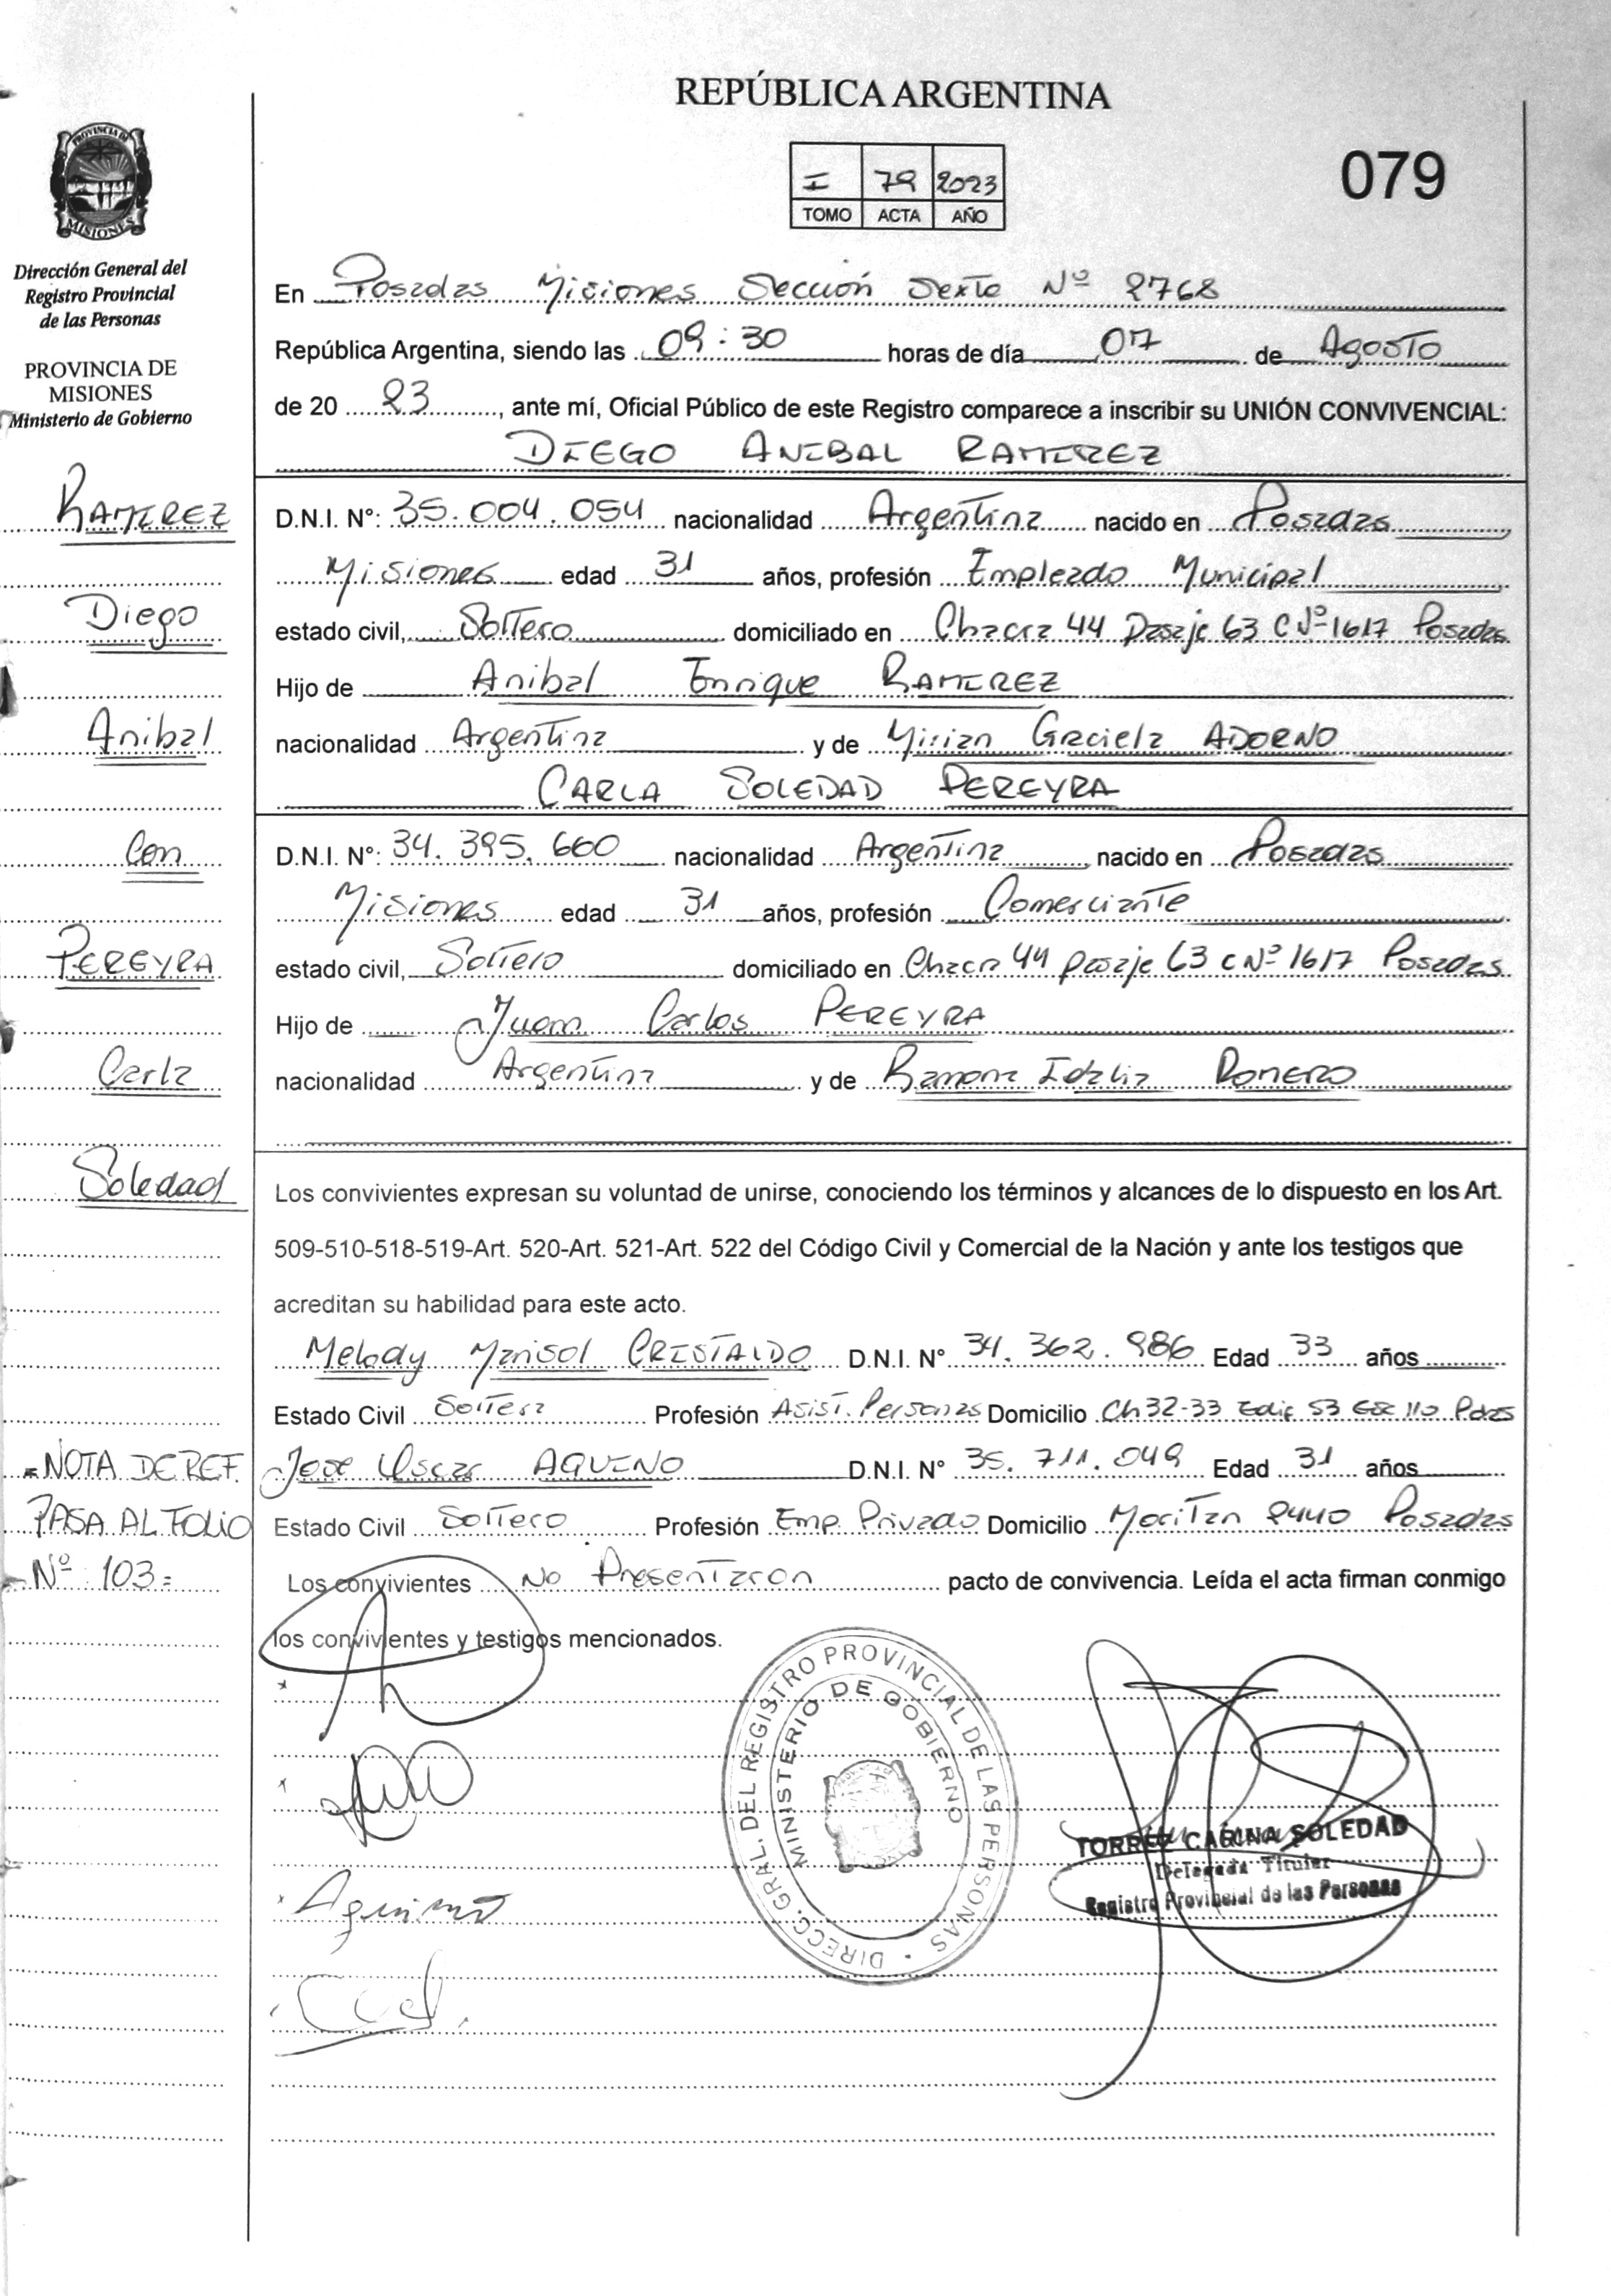 REPÚBLICA ARGENTINA
I 79 2023
TOMO ACTA AÑO
079
PROVINCIA DE
MISIONES
Dirección General del
Registro Provincial
de las Personas
PROVINCIA DE
MISIONES
Ministerio de Gobierno
RAMIREZ
Diego
Anibal
Con
PEREYRA
Carla
Soledad
NOTA DE REF.
PASA AL FOLIO
Nº 103=
En Posadas Misiones Sección Sexta Nº 2768
República Argentina, siendo las 09:30 horas de día 07 de Agosto
de 20 23, ante mí, Oficial Público de este Registro comparece a inscribir su UNIÓN CONVIVENCIAL:
DIEGO ANIBAL RAMIREZ
D.N.I. N°: 35.004.054 nacionalidad Argentina nacido en Posadas
Misiones edad 31 años, profesión Empleado Municipal
estado civil, Soltero domiciliado en Chacra 44 Pasaje 63 C Nº 1617 Posadas
Hijo de Anibal Enrique RAMIREZ
nacionalidad Argentina y de Mirian Graciela ADORNO
CARLA SOLEDAD PEREYRA
D.N.I. N°: 34.395.660 nacionalidad Argentina, nacido en Posadas
Misiones edad 31 años, profesión Comerciante
estado civil, Soltero domiciliado en Chacra 44 pasaje 63 C Nº 1617 Posadas
Hijo de Juan Carlos PEREYRA
nacionalidad Argentina y de Ramona Idalia ROMERO
Los convivientes expresan su voluntad de unirse, conociendo los términos y alcances de lo dispuesto en los Art.
509-510-518-519-Art. 520-Art. 521-Art. 522 del Código Civil y Comercial de la Nación y ante los testigos que
acreditan su habilidad para este acto.
Melody Marisol CRISTALDO D.N.I. N° 34.362.986 Edad 33 años
Estado Civil Soltera Profesión Asist. Personas Domicilio Ch 32-33 Edif 53 Esc 110 Pdas
Jose Oscar AQUINO D.N.I. N° 35.711.049 Edad 31 años
Estado Civil Soltero Profesión Emp. Privado Domicilio Moritan 2440 Posadas
Los convivientes No Presentaron pacto de convivencia. Leída el acta firman conmigo
los convivientes y testigos mencionados.
DIRECC. GRAL. DEL REGISTRO PROVINCIAL DE LAS PERSONAS
MINISTERIO DE GOBIERNO
TORREZ CARINA SOLEDAD
Delegada Titular
Registro Provincial de las Personas